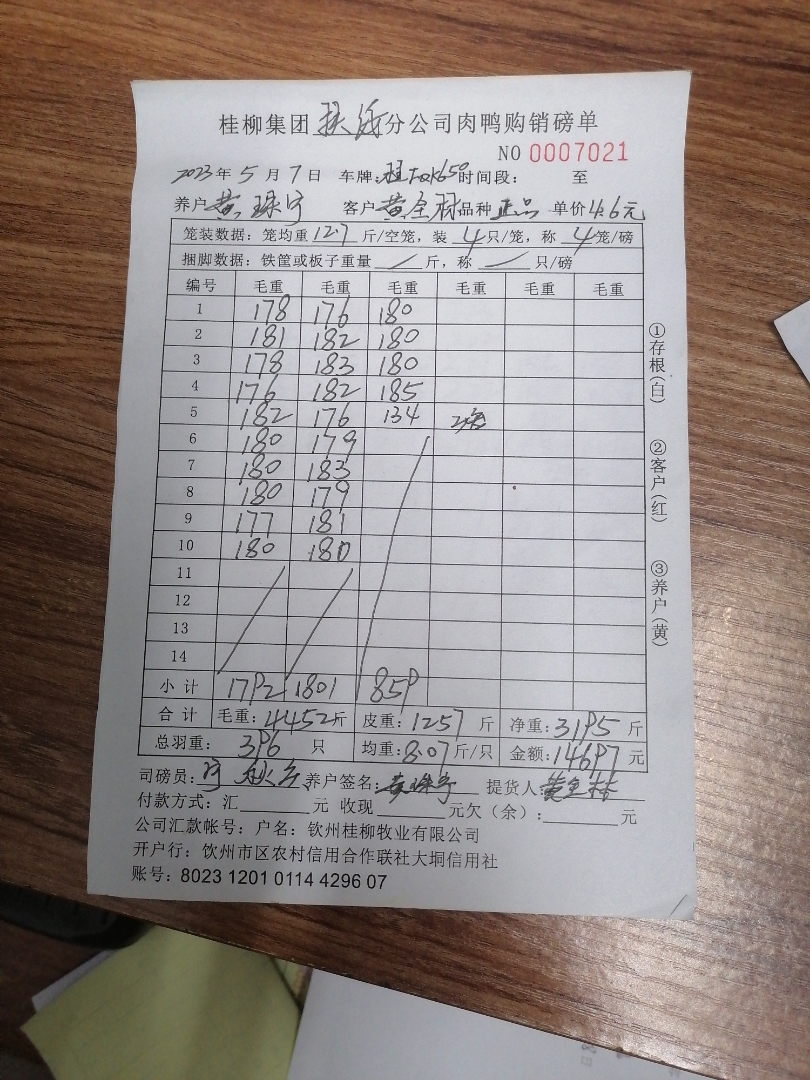 桂柳集团 扶绥 分公司肉鸭购销磅单
NO 0007021
2023年 5 月 7 日 车牌: 时间段: 至
养户 黄珠宇 客户 黄全材 品种 正品 单价 4.6元
笼装数据：笼均重 12.7 斤/空笼，装 4 只/笼，称 4 笼/磅
捆脚数据：铁筐或板子重量 / 斤，称 / 只/磅
编号 毛重 毛重 毛重 毛重 毛重 毛重
1 178 176 180
2 181 182 180
3 178 183 180
4 176 182 185
5 182 176 134
6 180 179
7 180 183
8 180 179
9 177 181
10 180 180
11
12
13
14
小计 1792 1801 859
合计 毛重：4452斤 皮重：1257 斤 净重：3195 斤
总羽重： 396 只 均重：8.07 斤/只 金额：14697 元
司磅员： 养户签名：黄珠宇 提货人：黄全材
付款方式：汇 元 收现 元欠（余）： 元
公司汇款帐号：户名：钦州桂柳牧业有限公司
开户行：钦州市区农村信用合作联社大垌信用社
账号：8023 1201 0114 4296 07
①存根（白）
②客户（红）
③养户（黄）